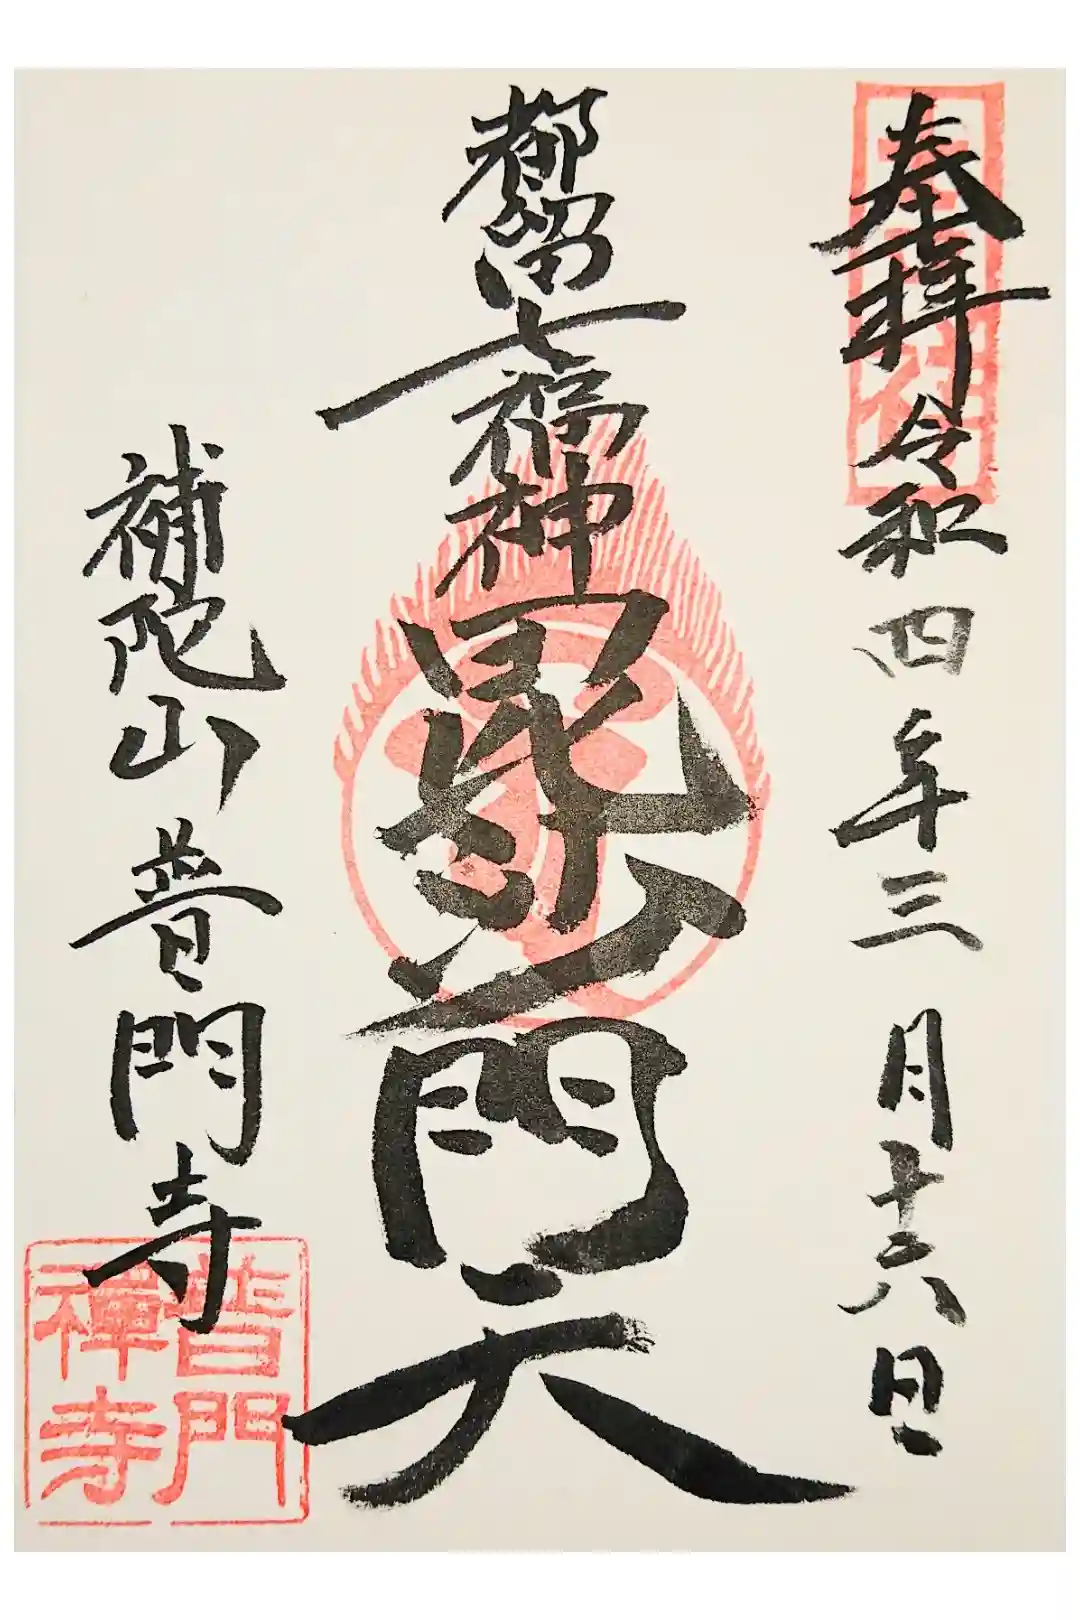 奉拝 令和四年三月十六日
都留七福神
毘沙門天
補陀山 普門寺
普門
禅寺